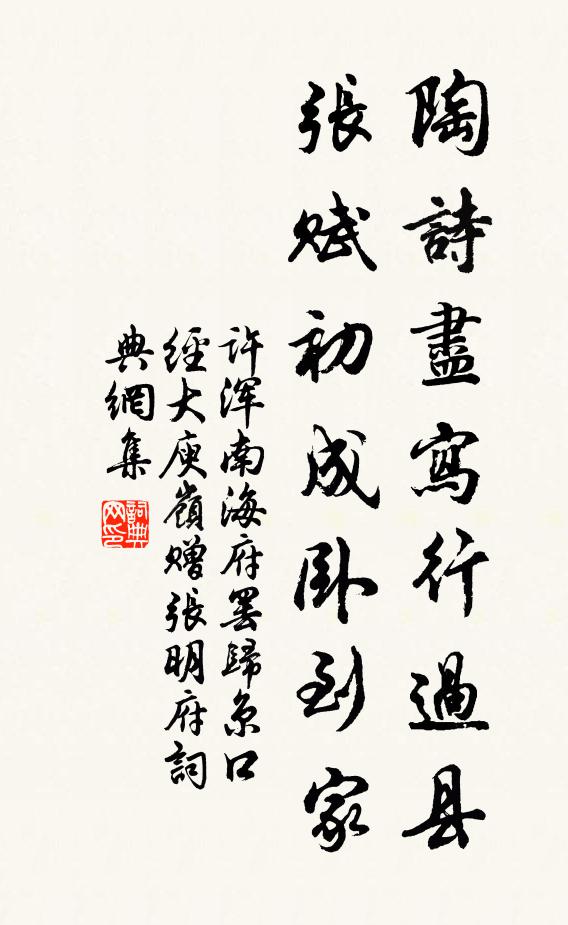 陶詩盡寫行過县
張賦初成卧到家
许渾南海府罢歸京口
經大庾嶺贈張明府詞
典網集
詞典网印